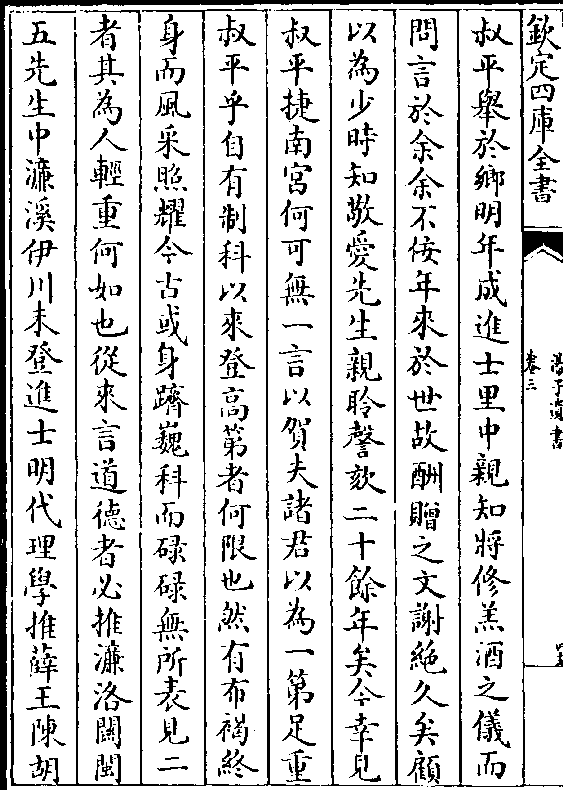 欽定四庫全書
湯子遺書
卷三
叔平舉於鄉明年成進士里中親知將修羔酒之儀而
問言於余余不佞年來於世故酬贈之文謝絕久矣顧
以為少時知敬愛先生親聆謦欬二十餘年矣今幸見
叔平捷南宮何可無一言以賀夫諸君以為一第足重
叔平乎自有制科以來登高第者何限也然有布褐終
身而風采照耀今古或身躋巍科而碌碌無所表見二
者其為人輕重何如也從來言道德者必推濂洛關閩
五先生中濂溪伊川未登進士明代理學推薛王陳胡